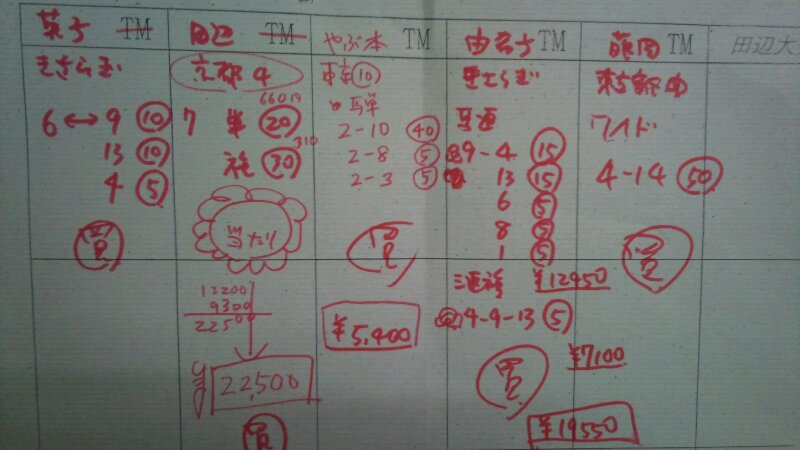 TM
きさらぎ
6 ↔ 9 ⑩
13 ⑩
4 ⑤
買
田辺 TM
京都 4
660円
7 単 ⑳
310
複 ㉚
当たり
13200
9300
22500
¥22,500
買
やぶ本 TM
東京 ⑩
馬単
2-10 ㊵
2-8 ⑤
2-3 ⑤
買
¥5,400
TM
きさらぎ
馬連
9-4 ⑮
13 ⑮
6 ⑤
8 ⑤
1 ⑤
三連複 ¥12450
4-9-13 ⑤
¥7100
買
¥19550
藤岡 TM
ワイド
4-14 ㊿
買
田辺大